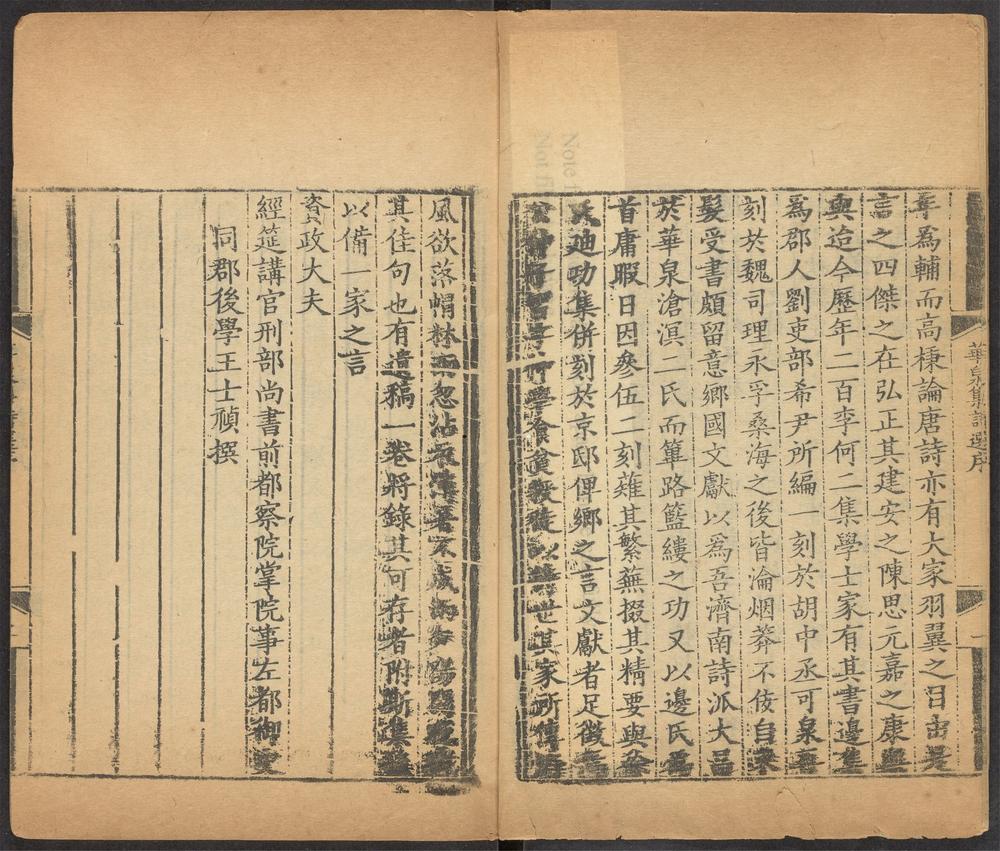 華泉集詩選序
輩為輔而高棅論唐詩亦有大家羽翼之目由是
言之四傑之在弘正其建安之陳思元嘉之康樂
與迨今歷年二百李何二集學士家有其書邊集
為郡人劉吏部希尹所編一刻於胡中丞可泉再
刻於魏司理永孚桑海之後皆淪烟莽不佞自束
髮受書頗留意鄉國文獻以為吾濟南詩派大昌
於華泉滄溟二氏而篳路籃縷之功又以邊氏為
首庸暇日因參伍二刻薙其繁蕪掇其精要與徐
氏迪功集併刻於京邸俾鄉之言文獻者足徵焉
世其家所傳
風欲落帽林忽沾衣
其佳句也有遺稿一卷將錄其可存者附斯集
以備一家之言
資政大夫
經筵講官刑部尚書前都察院掌院事左都御史
同郡後學王士禎撰
Note
Not